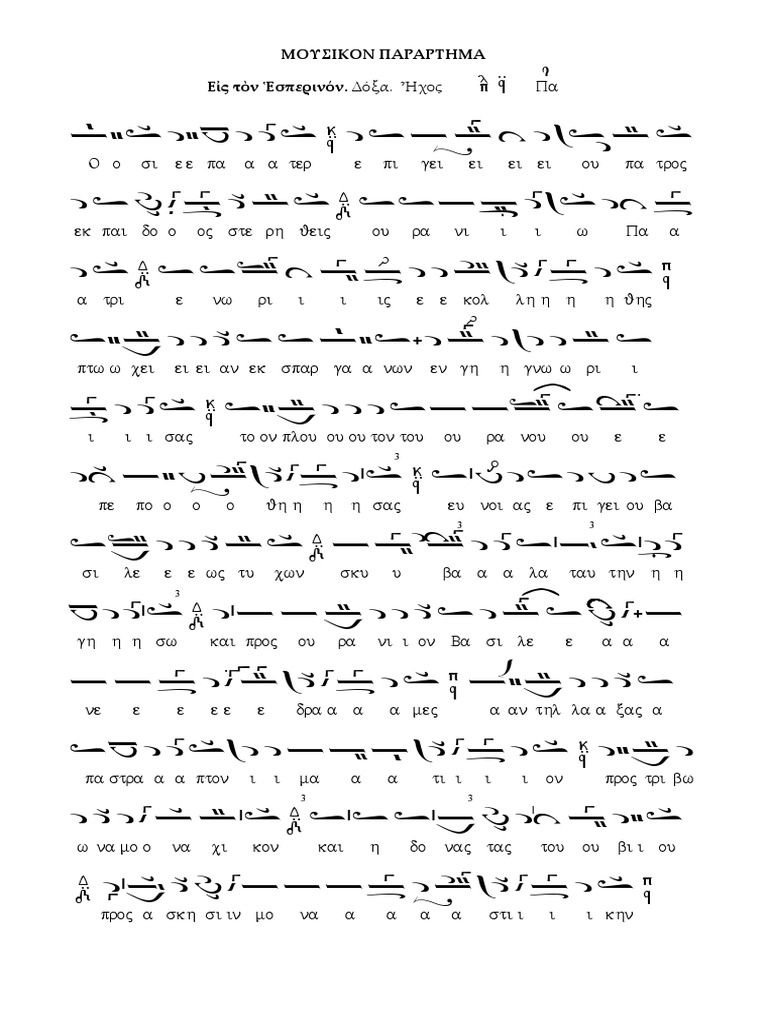 ΜΟΥΣΙΚΟΝ ΠΑΡΑΡΤΗΜΑ
Εἰς τὸν Ἑσπερινόν. Δόξα. Ἦχος λ π q Πα
Ο ο σι ε ε πα α α τερ ε πι γει ει ει ει ου πα τρος
εκ παι δο ο ος στε ρη θεις ου ρα νι ι ι ω Πα α
α τρι ε νω ρι ι ι ις ε ε κολ λη η η η θης
πτω ω χει ει ει αν εκ σπαρ γα α νων εν γη η γνω ω ρι ι
ι ι ι σας το ον πλου ου ου τον του ου ρα νου ου ε ε
πε πο ο ο ο θη η η η σας ευ νοι ας ε πι γει ου βα
σι λε ε ε ως τυ χων σκυ υ βα α α λα ταυ την η η
γη η η σω και προς ου ρα νι ι ον Βα σι λε ε α α α
νε ε ε ε ε ε δρα α α α μες α αν τηλ λα α ξας α
πα στρα α α πτον ι ι μα α α τι ι ι ι ον προς τρι βω
ω να μο ο να χι κον και η δο νας τας του ου βι ι ου
προς α σκη σι ιν μο να α α α α στι ι ι κην